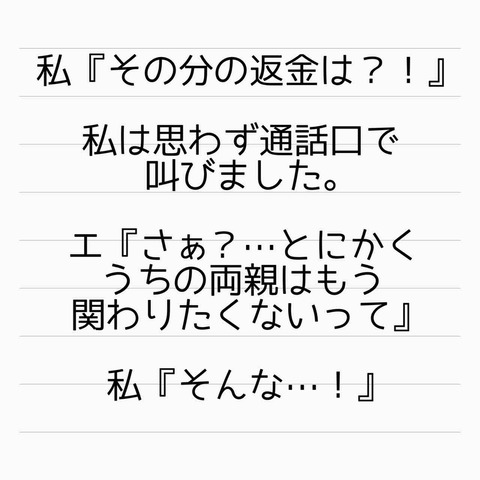 私『その分の返金は？！』
私は思わず通話口で
叫びました。
エ『さぁ？…とにかく
うちの両親はもう
関わりたくないって』
私『そんな…！』